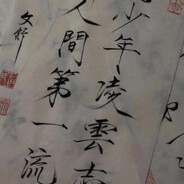 少年凌雲志
人間第一流
文